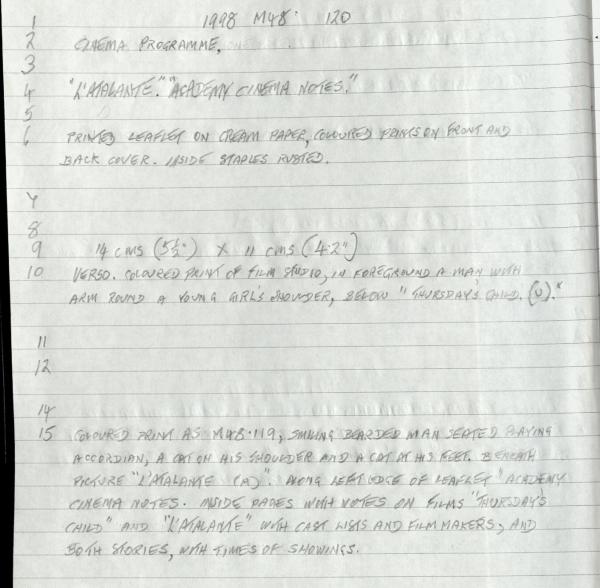 1 1998 M48. 120
2 CINEMA PROGRAMME,
3
4 "L'ATALANTE." "ACADEMY CINEMA NOTES."
5
6 PRINTED LEAFLET ON CREAM PAPER, COLOURED PRINTS ON FRONT AND
BACK COVER. INSIDE STAPLES RUSTED.
7
8
9 14 cms (5½") X 11 cms (4.2")
10 VERSO. COLOURED PRINT OF FILM STUDIO, IN FOREGROUND A MAN WITH
ARM ROUND A YOUNG GIRL'S SHOULDER, BELOW "THURSDAY'S CHILD. (U)."
11
12
14
15 COLOURED PRINT AS M48.119, SMILING BEARDED MAN SEATED PLAYING
ACCORDIAN, A CAT ON HIS SHOULDER AND A CAT AT HIS FEET. BENEATH
PICTURE "L'ATALANTE (A)". ALONG LEFT EDGE OF LEAFLET "ACADEMY
CINEMA NOTES. INSIDE PAGES WITH NOTES ON FILMS "THURSDAY'S
CHILD" AND "L'ATALANTE" WITH CAST LISTS AND FILM MAKERS, AND
BOTH STORIES, WITH TIMES OF SHOWINGS.